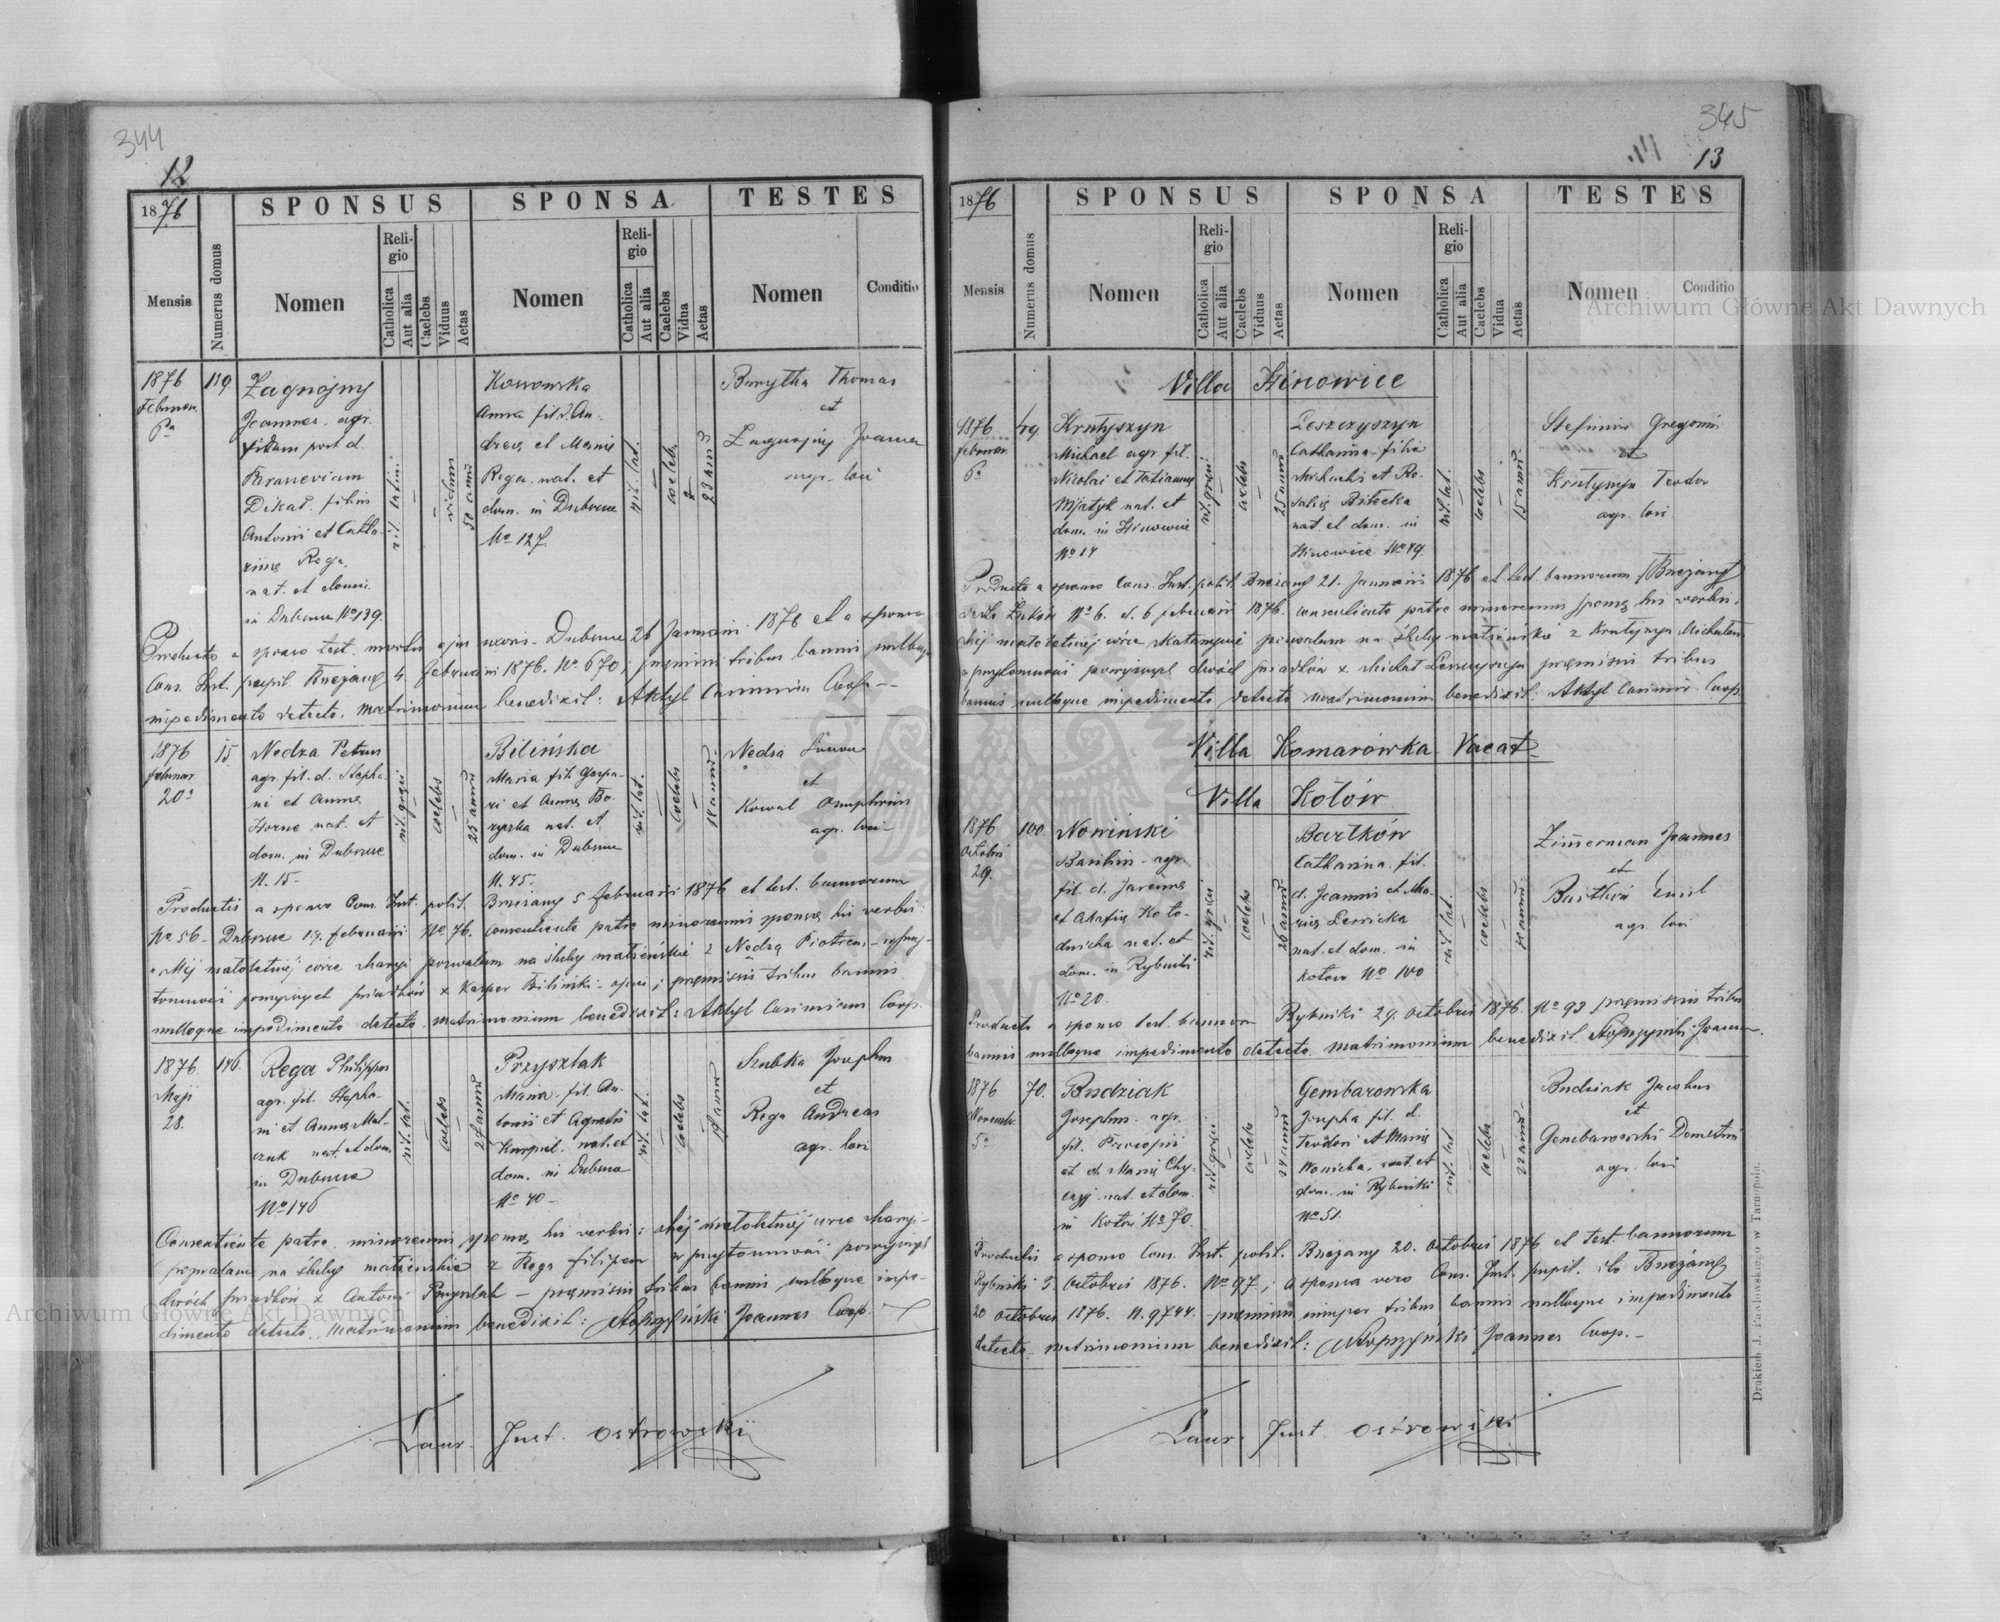 344
12
1876
SPONSUS
SPONSA
TESTES
Mensis
Numerus domus
Nomen
Religio
Catholica
Aut alia
Caelebs
Viduus
Aetas
Nomen
Religio
Catholica
Aut alia
Caelebs
Vidua
Aetas
Nomen
Conditio
1876
Februar.
6a
139
Zagnojny
Joannes agr.
viduus post d.
Dikał. filius
Antonii et Catha-
rina Rega
nat. et domi.
in Dubsrue No 139.
rit. latin.
viduus
50 anni
Kossowska
Anna fil. d. An-
dreas et Maria
Rega. nat. et
dom. in
No 127.
rit. lat.
coelebs
23 anni
Thomas
et
Zagnojny Joannes
agr. loci
Producto a sponso test. mortis ejus uxoris 26 Januarii 1876 et a sponsa
Cons. Inst. pupil. Brzeżany 4. februarii 1876. No 670; praemissis tribus bannis nulloque
impedimento detecto. matrimonium benedixit: Aktyl Casimirus Coop.
1876
februar.
20a
15.
Nedza Petrus
agr. fil. d. Stepha-
ni et Anna
nat. et
dom. in
N. 15.
rit. graeci
coelebs
25 anni
Bilińska
Maria fil. Gaspa-
ri et Anna Bo-
nat. et
dom. in
N. 45.
rit. lat.
coelebs
18 anni
Nedza Simon
et
Kowal Onuphrius
agr. loci
Productis a sponso Cons. Inst. polit. Brzeżany 5 februarii 1876 et test. bannorum
No 56. 19. februarii No 76. consentiente patre minorennis sponsae his verbis:
Mej małoletniej córce Maryi pozwalam na śluby małżeńskie z Nedzą Piotrem, w przy-
tomności powyższych świadków x Kasper Biliński - ojciec; praemissis tribus bannis
nulloque impedimento detecto matrimonium benedixit: Aktyl Casimirus Coop.
1876.
Maji
28.
146.
Rega Philippus
agr. fil. Stepha-
ni et Anna Mat-
czuk nat. et dom.
in
No 146
rit. lat.
coelebs
27 anni
Przysztak
Maria fil. An-
tonii et Agnetis
nat. et
dom. in
No 40
rit. lat.
coelebs
17 anni
Szubka Josephus
et
Rega Andreas
agr. loci
Consentiente patre minorennis sponsae his verbis: Mej małoletniej córce Maryi
pozwalam na śluby małżeńskie z Rega Filipem w przytomności powyższych
dwóch świadków x Antoni Przysztak - praemissis tribus bannis nulloque impe-
dimento detecto. Matrimonium benedixit: Joannes Coop.
Laur. Just. Ostrowski
345
13
1876
SPONSUS
SPONSA
TESTES
Mensis
Numerus domus
Nomen
Religio
Catholica
Aut alia
Caelebs
Viduus
Aetas
Nomen
Religio
Catholica
Aut alia
Caelebs
Vidua
Aetas
Nomen
Conditio
Villa Hinowice
1876
februar.
6a
49
Krutyszyn
Michael agr. fil.
Nicolai et Tatianna
Mjatyk nat. et
dom. in Hinowice
No 14
rit. graeci
coelebs
25 anni
Leszczyszyn
Catharina filia
Michaelis et Ro-
salia Bilecka
nat. et dom. in
Hinowice No 49.
rit. lat.
coelebs
15 anni
Stefiniw Gregorius
et
Krutyszyn Teodor
agr. loci
Producto a sponso Cons. Inst. polit. Brzeżany 21. Januarii 1876 et test. bannorum Brzeżany
No 6. d. 6 februarii 1876. consentiente patre minorennis sponsae his verbis:
Mej małoletniej córce Katarzynie pozwalam na śluby małżeńskie z Krutyszyn Michałem
w przytomności powyższych dwóch świadków x Michał Leszczyszyn praemissis tribus
bannis nulloque impedimento detecto matrimonium benedixit: Aktyl Casimir Coop.
Villa Komarówka Vacat
Villa Kotów
1876
octobris
29.
100.
Nowiński
Basilius agr.
fil. d. Jarema
et Koło-
dnicka nat. et
dom. in Rybniki
No 20.
rit. graeci
coelebs
26 anni
Bartków
Catharina fil.
d. Joannis et Ma-
ria Lewicka
nat. et dom. in
Kotow No 100
rit. lat.
coelebs
Zimerman Joannes
et
Bartków
agr. loci
Producto a sponso test. bannorum Rybniki 29. octobris 1876. No 93 praemissis tribus
bannis nulloque impedimento detecto matrimonium benedixit Joannes
1876
Novembr.
5a
70.
Budziak
Josephus agr.
fil. Procopii
et d. Maria Chy-
nat. et dom.
in Kotów No 70.
rit. graeci
coelebs
24 anni
Gembarowska
Josepha fil. d.
Teodori et Maria
Wonicka, nat. et
dom. in Rybniki
No 51.
rit. lat.
coelebs
22 anni
Budziak Jacobus
et
Gembarowski Demetrius
agr. loci
Productis a sponso Cons. Inst. polit. Brzeżany 20. octobris 1876 et test. bannorum
Rybniki 5. octobris 1876. No 97; a sponsa vero Cons. Inst. pupil. Brzeżany
20 octobris 1876. N. 9744. praemissis tribus bannis nulloque impedimento
detecto matrimonium benedixit: Joannes Coop.
Laur. Just. Ostrowski
Drukiem J. Pawłowskiego w Tarnopolu.
Archiwum Główne Akt Dawnych
Archiwum Główne Akt Dawnych